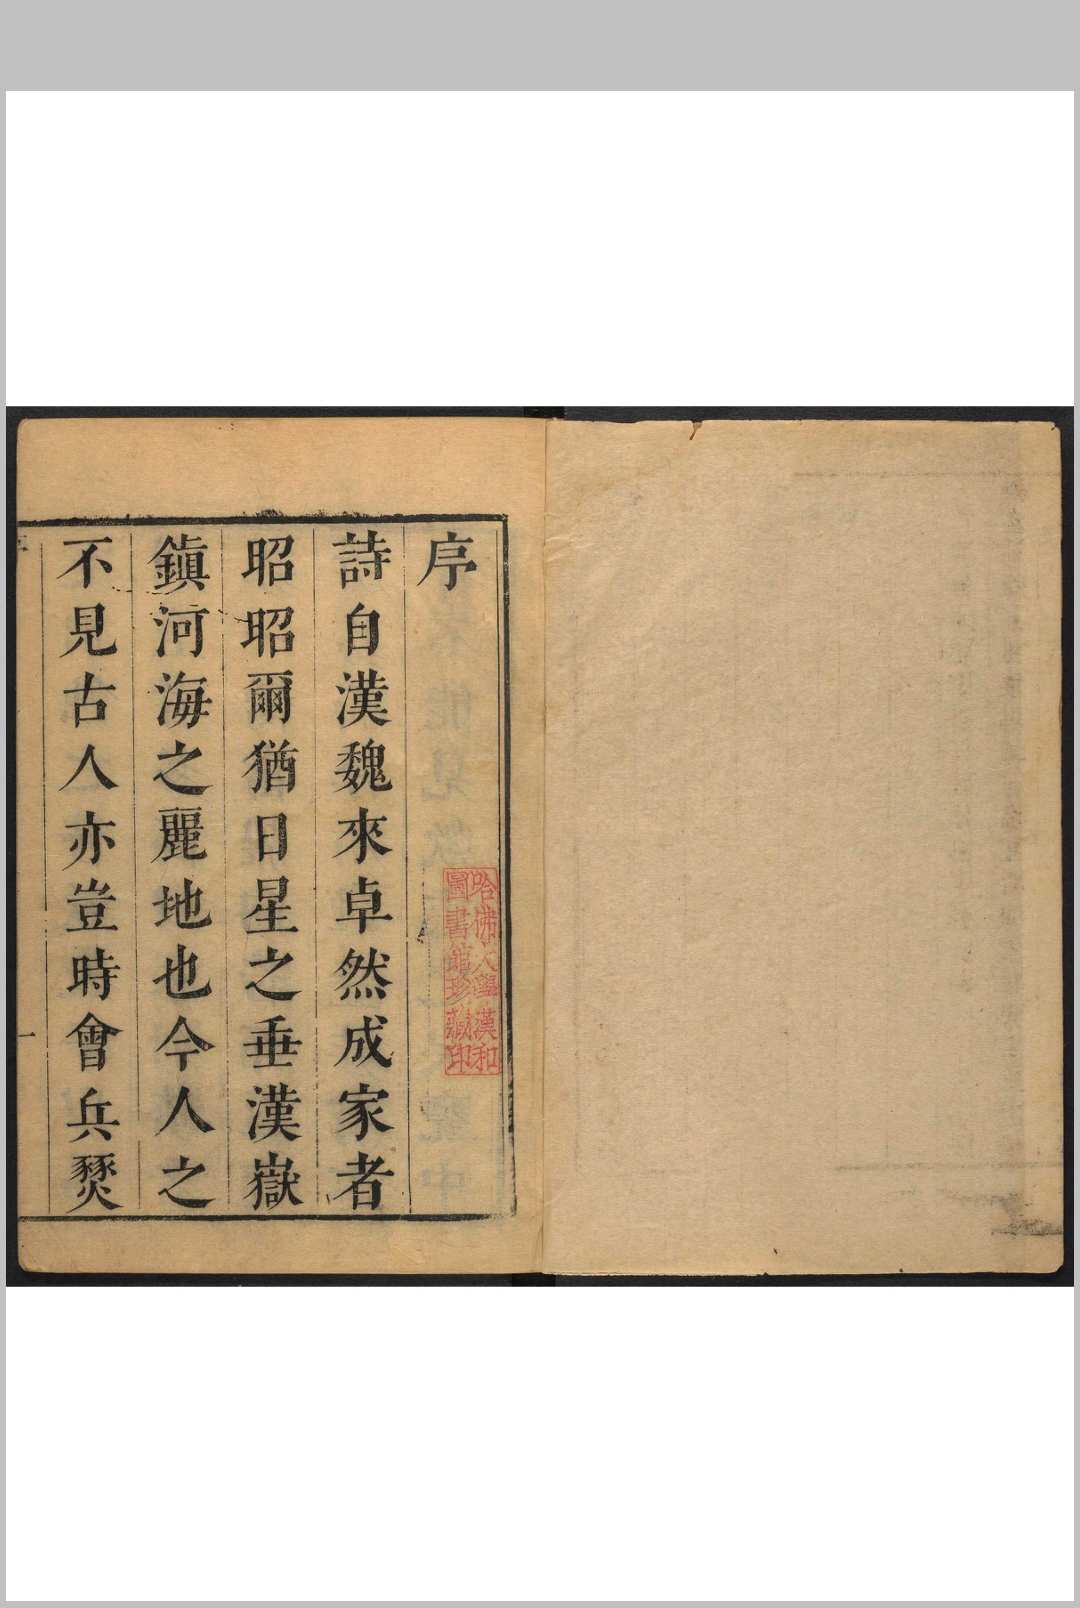 序
詩自漢魏來卓然成家者
昭昭爾猶日星之垂漢嶽
鎮河海之麗地也今人之
不見古人亦豈時會兵燹
哈佛大學漢和
圖書館珍藏印
一